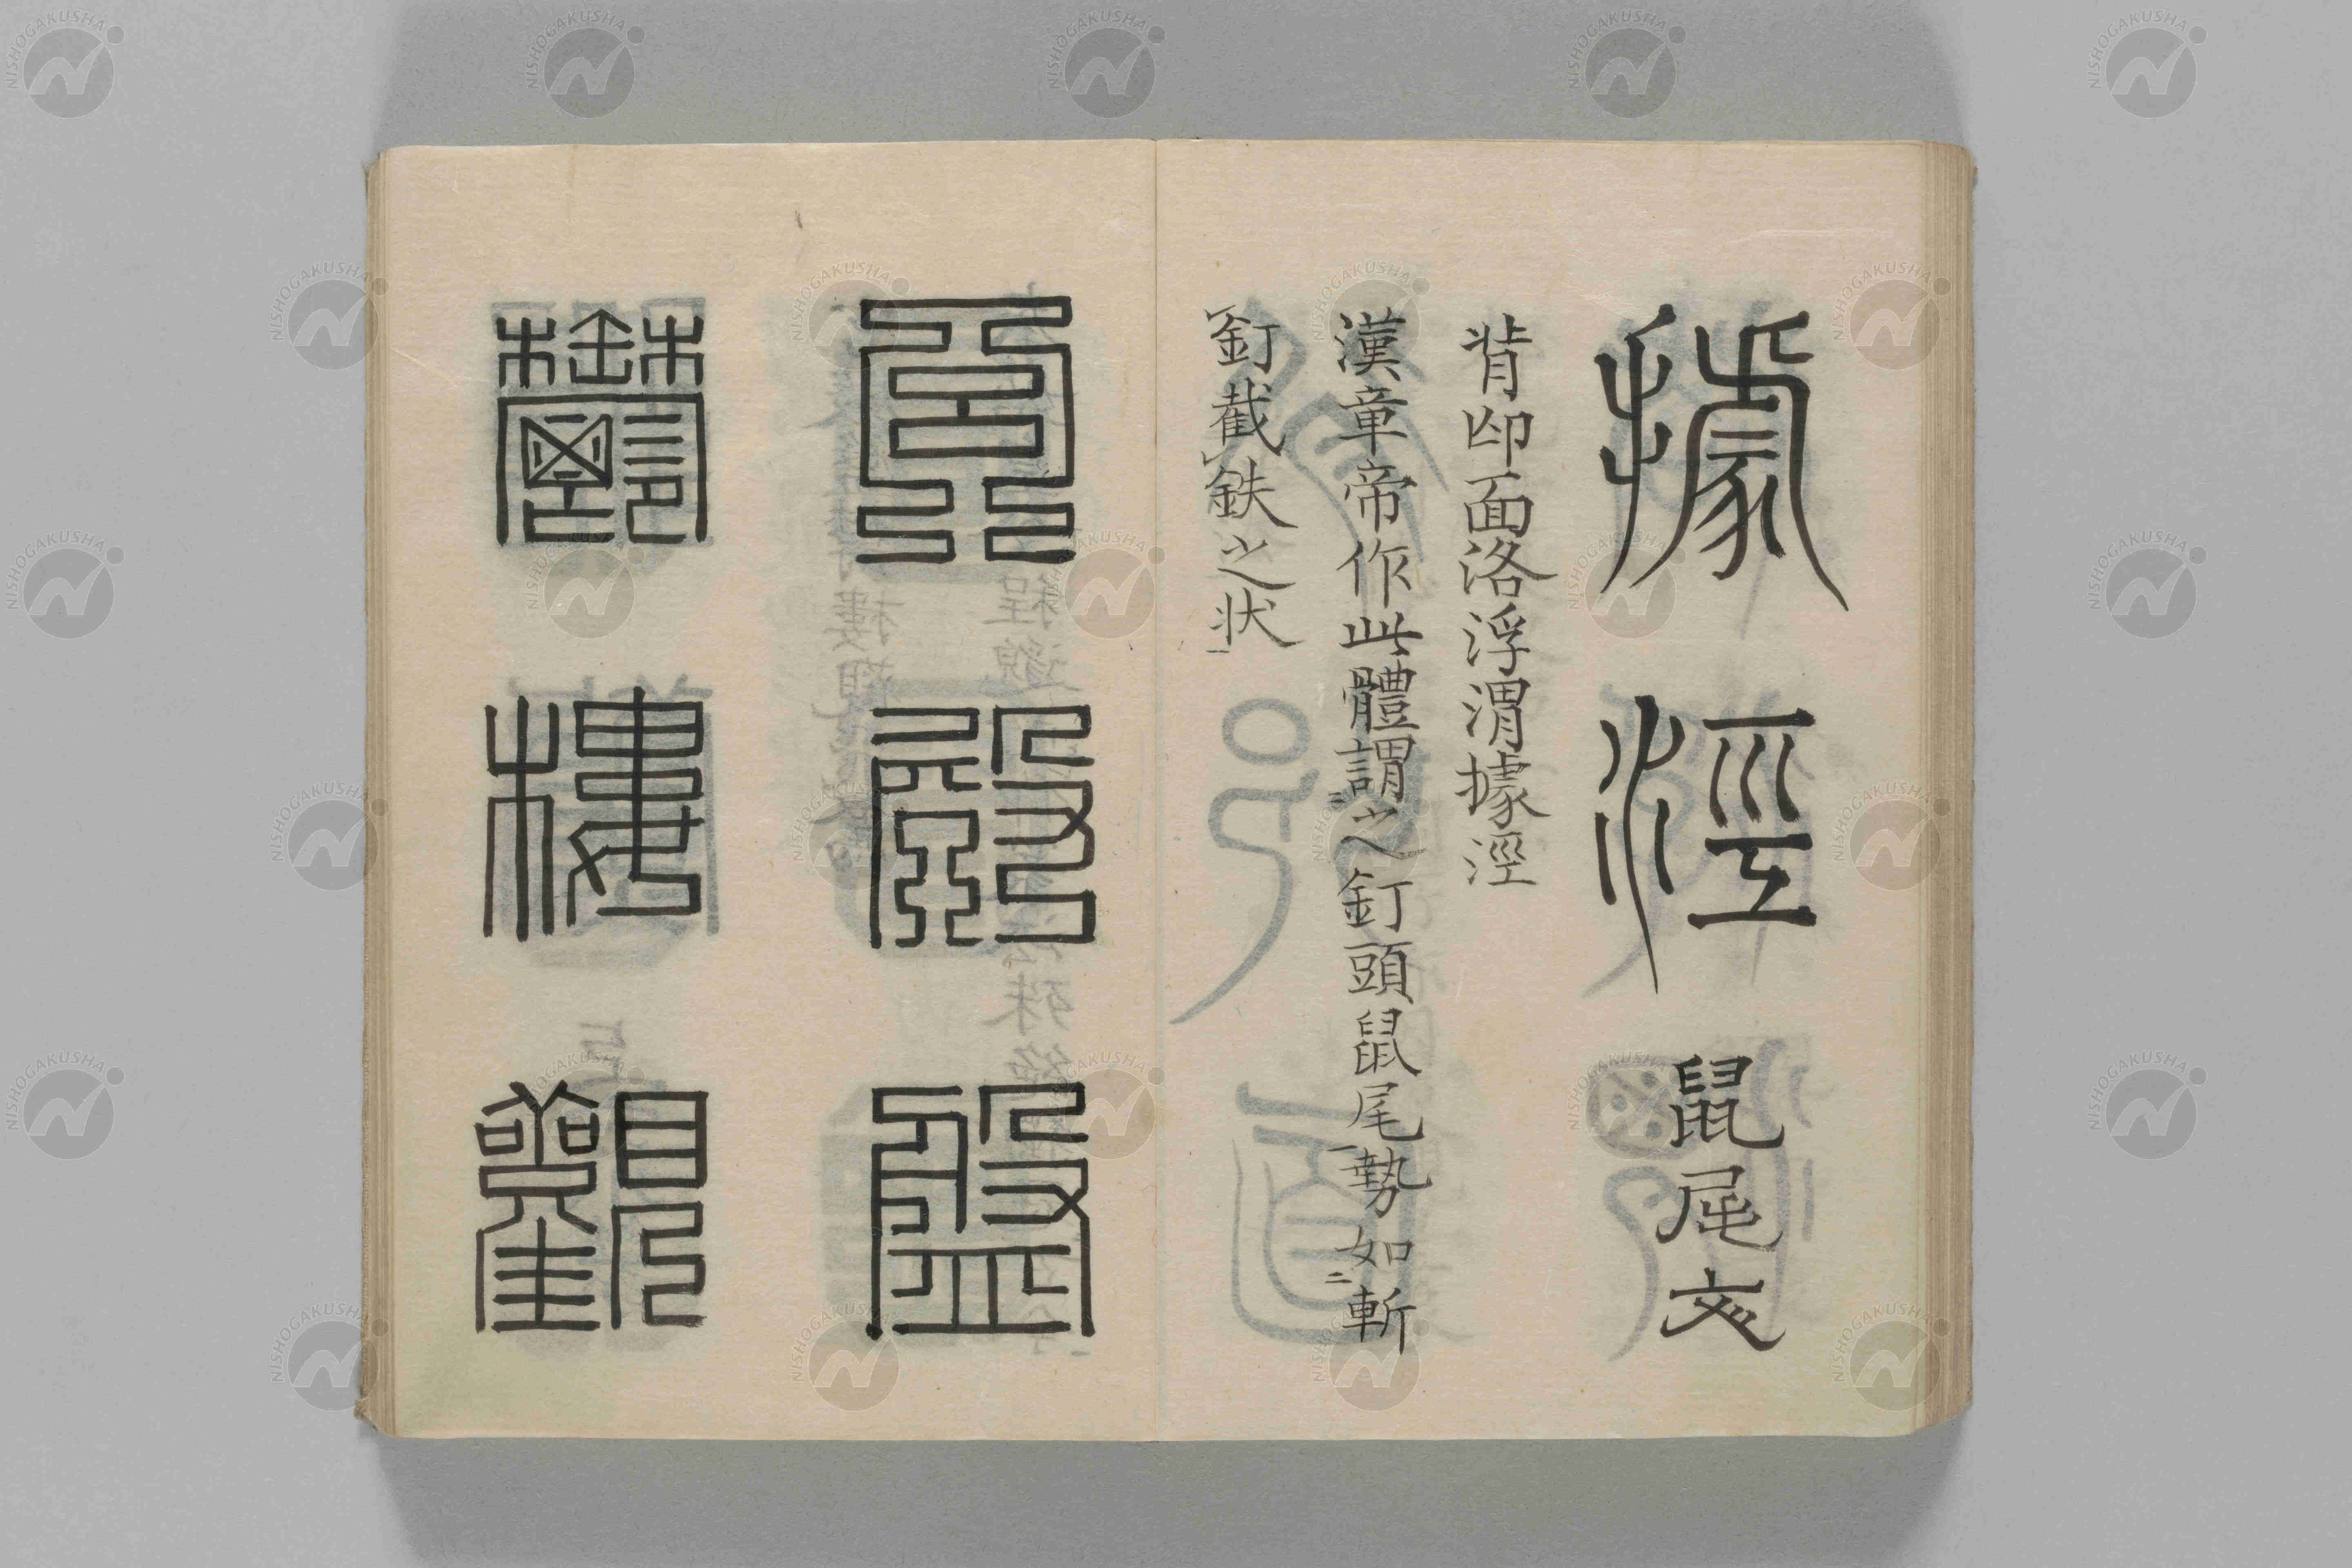 據涇鼠尾文
背邙面洛浮渭據涇
漢章帝作此體謂二之釘頭鼠尾一勢如二斬
釘截鉄之状一
宮殿盤
鬱樓觀
NISHOGAKUSHA